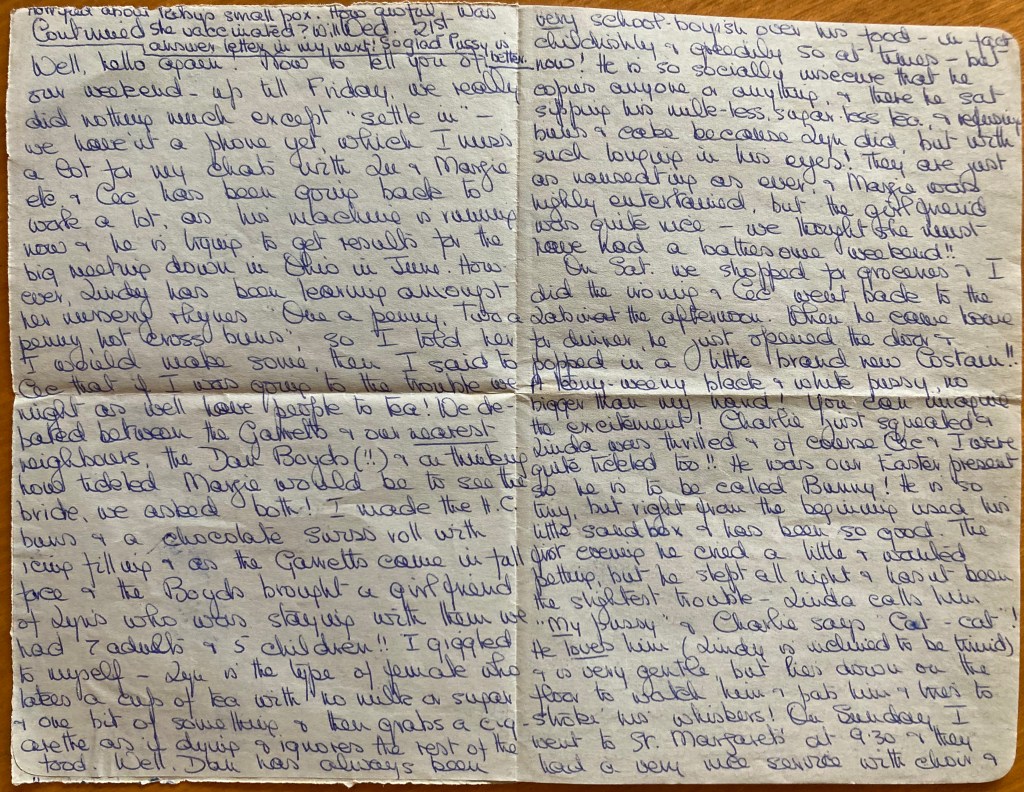 worried about Lesley's small pox. How awful, was
Continued she vaccinated? Will Wed. 21st
answer letter in my next! So glad Pussy is better.
Well, hallo again. Now to tell you of
our weekend - up till Friday, we really
did nothing much except "settle in" -
we haven't a phone yet, which I miss
a lot for my chats with Lu & Margie
etc, & Cec has been going back to
work a lot, as his machine is running
now & he is trying to get results for the
big meeting down in Ohio in June. How-
ever, Lindy has been learning amongst
her nursery rhymes "One a penny, Two a
penny hot cross buns", so I told her
I would make some, then I said to
Cec that if I was going to the trouble we
might as well have people to tea! We de-
bated between the Garretts & our nearest
neighbours, the Dan Boyds (!!) & on thinking
how tickled Margie would be to see the
bride, we asked both! I made the H.C.
buns & a chocolate swiss roll with
icing filling & as the Garretts came in full
force & the Boyds brought a girl friend
of Lyn's who was staying with them we
had 7 adults & 5 children!! I giggled
to myself - Lyn is the type of female who
takes a cup of tea with no milk or sugar
& one bit of something & then grabs a cig-
arette as if dying & ignores the rest of the
food. Well, Dan has always been
very school-boyish over his food - in fact
childishly & greedily so at times - but
now! He is so socially insecure that he
copies anyone or anything, & there he sat
sipping his milk-less, sugar-less tea, & refusing
buns & cake because Lyn did, but with
such longing in his eyes! They are just
as nauseating as ever, & Margie was
highly entertained, but the girl friend
was quite nice - we thought she must
have had a bothersome weekend!!
On Sat. we shopped for groceries & I
did the ironing & Cec went back to the
Lab most the afternoon. When he came home
for dinner, he just opened the door &
popped in a little brand new Costain!!
A teeny-weeny black & white pussy, no
bigger than my hand! You can imagine
the excitement! Charlie just squealed &
Linda was thrilled & of course Cec & I were
quite tickled too!! He was our Easter present
so he is to be called Bunny! He is so
tiny, but right from the beginning used his
little sandbox & has been so good. The
first evening he cried a little & wanted
petting, but he slept all night & hasn't been
the slightest trouble - Linda calls him
"My pussy" & Charlie says "Cat - cat"!
He loves him (Lindy is inclined to be timid)
& is very gentle, but lies down on the
floor to watch him & pats him & tries to
stroke his whiskers! On Sunday I
went to St. Margarets at 9.30 & they
had a very nice service with choir &